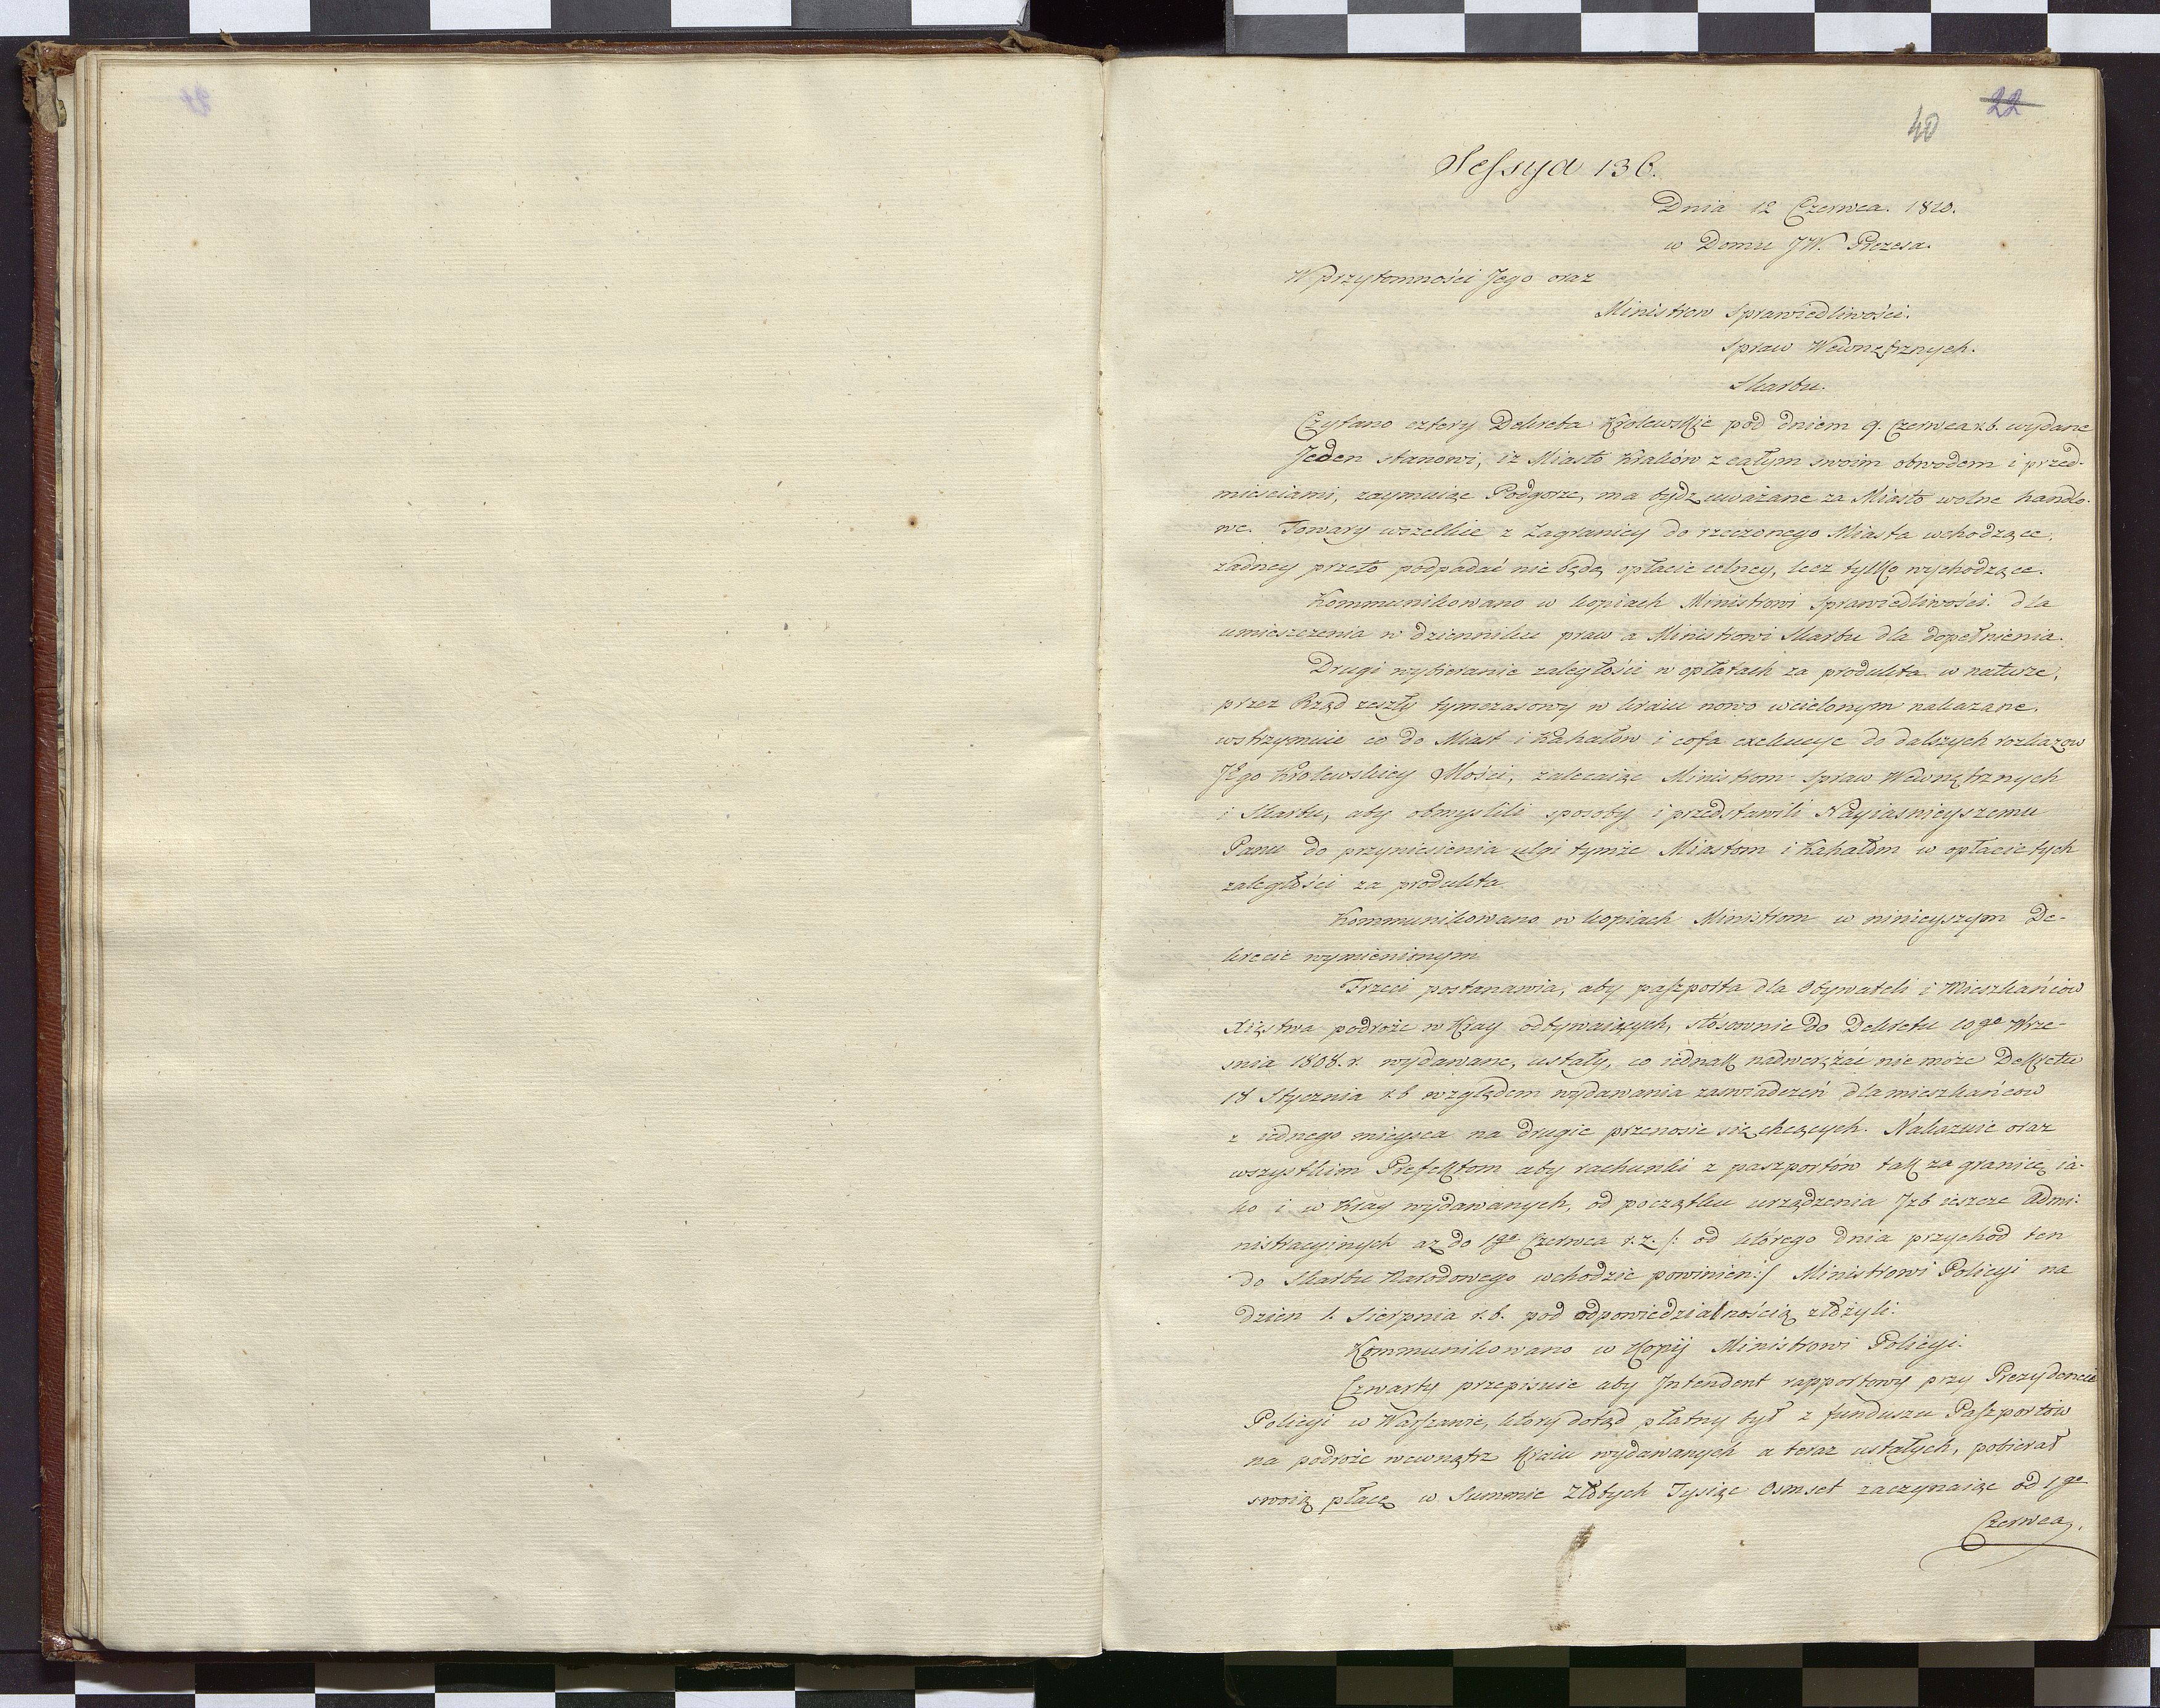 22
40
Sessya 136.
Dnia 12 Czerwca. 1810.
w Domu JW. Prezesa.
W przytomności Jego oraz
Ministrow Sprawiedliwości.
Spraw Wewnętrznych.
Skarbu.
Czytano cztery Dekreta Królewskie pod dniem 9. Czerwca r.b. wydane
Jeden stanowi, iż Miasto Kraków z całym swoim obwodem i przed-
mieściami, zaymuiąc Podgorze, ma bydz uważane za Miasto wolne handlo-
we. Towary wszelkie z Zagranicy do rzeczonego Miasta wchodzące,
żadney przeto podpadać nie będą opłacie celney, lecz tylko wychodzące.
Kommunikowano w kopiach Ministrowi Sprawiedliwości dla
umieszczenia w dzienniku praw a Ministrowi Skarbu dla dopełnienia.
Drugi wybieranie zaległości w opłatach za produkta w naturze,
przez Rząd zeszły tymczasowy w kraiu nowo wcielonym nakazane,
wstrzymuie co do Miast i Kahałow i cofa exekucye do dalszych rozkazow
JEgo Krolewskiey Mości, zalecaiąc Ministrom Spraw Wewnętrznych
i Skarbu, aby obmyslili sposoby i przedstawili Nayiasnieyszemu
Panu do przyniesienia ulgi tymże Miastom i Kahałom w opłacie tych
zaległości za produkta.
Kommunikowano w kopiach Ministrom w ninieyszym De-
krecie wymienionym
Trzeci postanawia, aby paszporta dla Obywateli i Mieszkańców
Xięstwa podroże w Kray odbywaiących, stosownie do Dekretu 10go Wrze-
snia 1808. r. wydawane, ustały, co iednak nadwerężać nie może Dekretu
18 Stycznia r.b względem wydawania zaswiadczeń dla mieszkańcow
z iednego mieysca na drugie przenosic się chcących. Nakazuie oraz
wszystkim Prefektom aby rachunki z paszportów tak za granicę ia-
ko i w Kray wydawanych, od początku urządzenia Jzb ieszcze Admi-
nistracyinych aż do 1go Czerwca r.z. /: od którego dnia przychod ten
do Skarbu Narodowego wchodzic powinien:/ Ministrowi Policyi na
dzien 1. Sierpnia r.b. pod odpowiedzialnością złożyli.
Kommunikowano w Kopij Ministrowi Policyi.
Czwarty przepisuie aby Jntendent rapportowy przy Prezydencie
Policyi w Warszawie, ktory dotąd płatny był z funduszu Paszportów
na podroże wewnątrz Kraiu wydawanych a teraz ustałych, pobierał
swoią płacę w Summie Złotych Tysiąc Osmset zaczynaiąc od 1go
Czerwca,